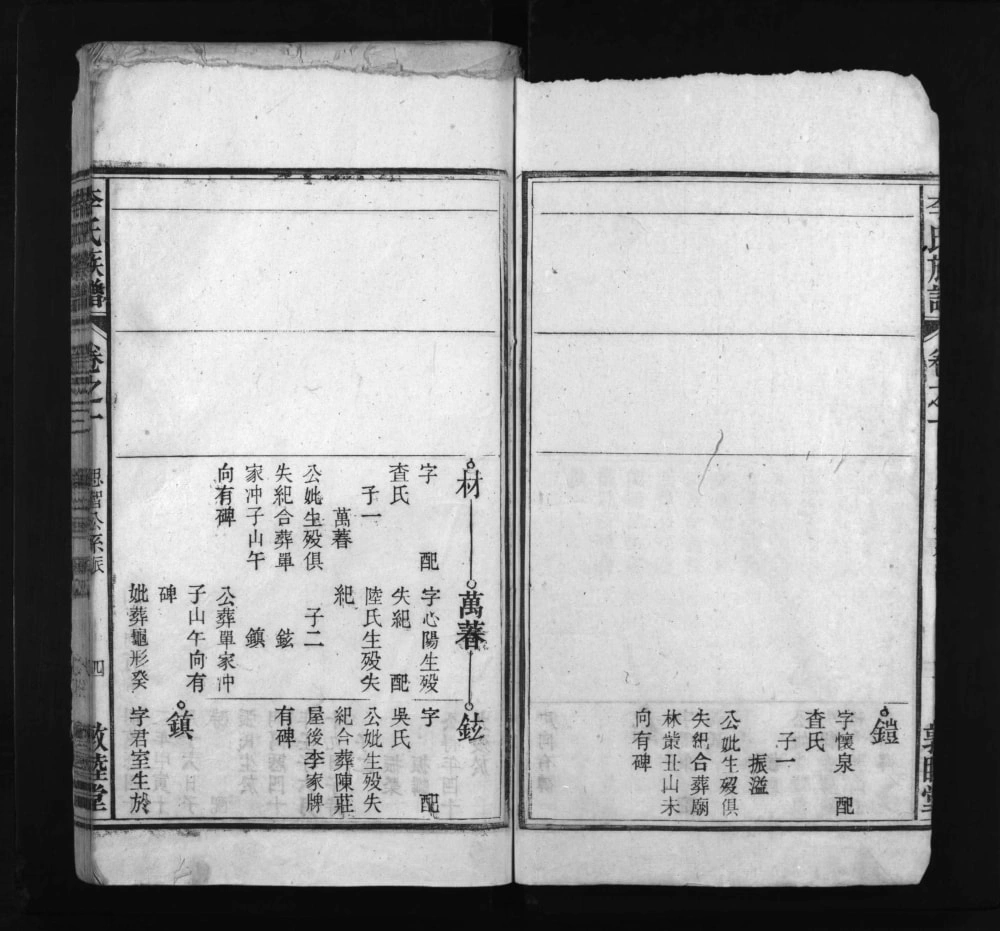 李氏族譜
卷之一
鎧
字懷泉 配
查氏
子一
振溢
公妣生歿俱
失紀合葬廟
林
丑山未
向有碑
材
字 配
查氏
子一
萬暮
公妣生歿俱
失紀合葬單
家冲子山午
向有碑
萬暮
字心陽生歿
失紀 配
陸氏生歿失
紀
子二
鉉
鎮
公葬單家冲
子山午向有
碑
妣葬龜形癸
鉉
字 配
吳氏
公妣生歿失
紀合葬陳莊
屋後李家牌
有碑
鎮
字君室生於
李氏族譜
卷之一
思智公系派
四
敦睦堂